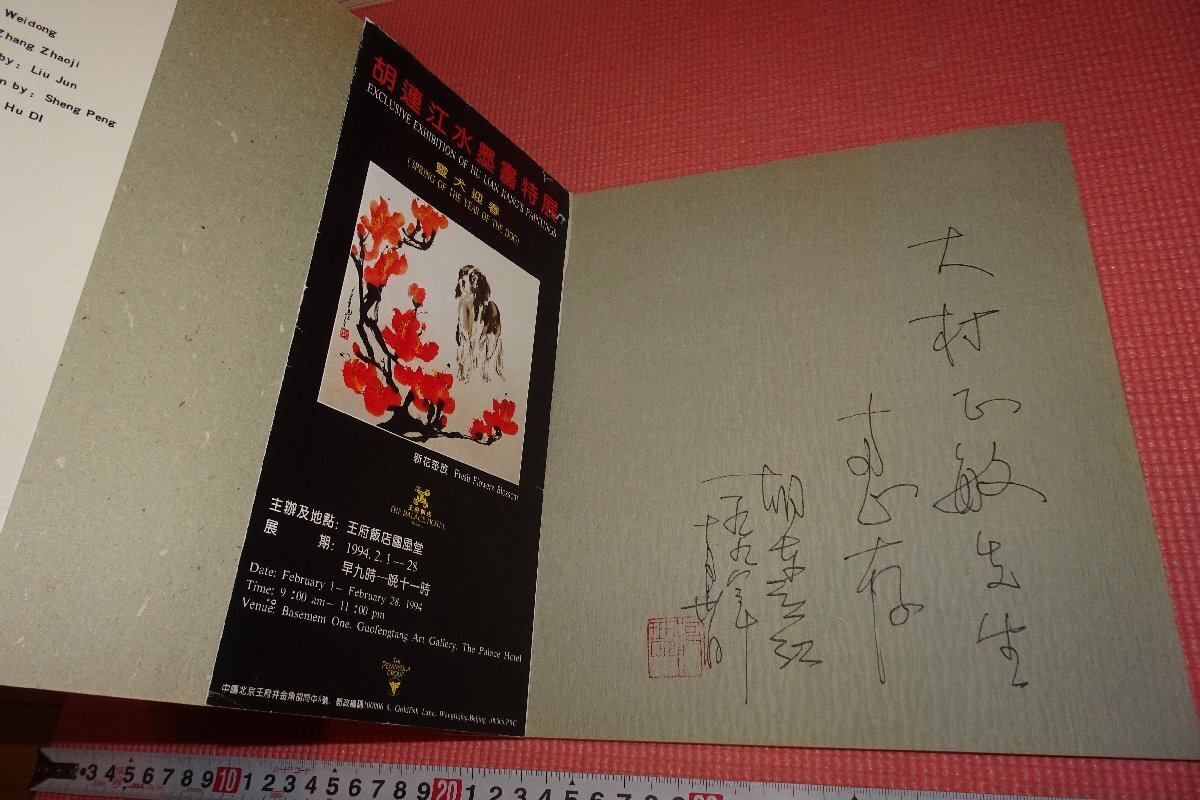 Weidong
Zhang Zhaoji
by: Liu Jun
n by: Sheng Peng
Hu DI
胡連江水墨畫特展
EXCLUSIVE EXHIBITION OF HU LIAN JIANG'S PAINTINGS
靈犬迎春
(SPRING OF THE YEAR OF THE DOG)
新花怒放 Fresh Flowers Blossom
王府飯店
THE PALACE HOTEL
主辦及地點：王府飯店國風堂
展期：1994.2.1—28
早九時—晚十一時
Date: February 1– February 28, 1994
Time: 9:00 am– 11:00 pm
Venue: Basement One, Guofengtang Art Gallery, The Palace Hotel
THE
PENINSULA
GROUP
中國北京王府井金魚胡同中8號，郵政編碼100006 8, Goldfish Lane, Wangfujing, Beijing 100006 PRC
大村正敏先生
惠存
3 4 5 6 7 8 9 10 1 2 3 4 5 6 7 8 9 20 1 2 3 4 5 6 7 8 9